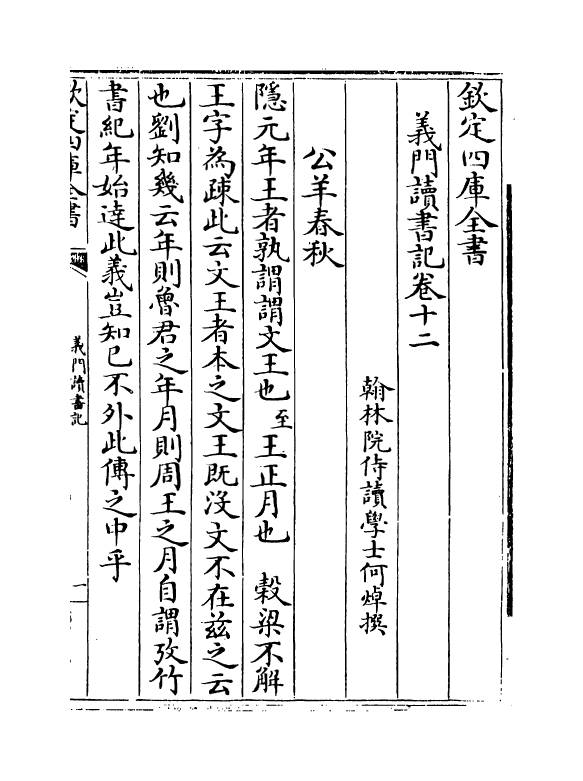 欽定四庫全書
義門讀書記卷十二
翰林院侍讀學士何焯撰
公羊春秋
隱元年王者孰謂謂文王也至王正月也　穀梁不解
王字為疎此云文王者本之文王既没文不在兹之云
也劉知幾云年則魯君之年月則周王之月自謂攷竹
書紀年始逹此義豈知已不外此傳之中乎
欽定四庫全書
義門讀書記
一